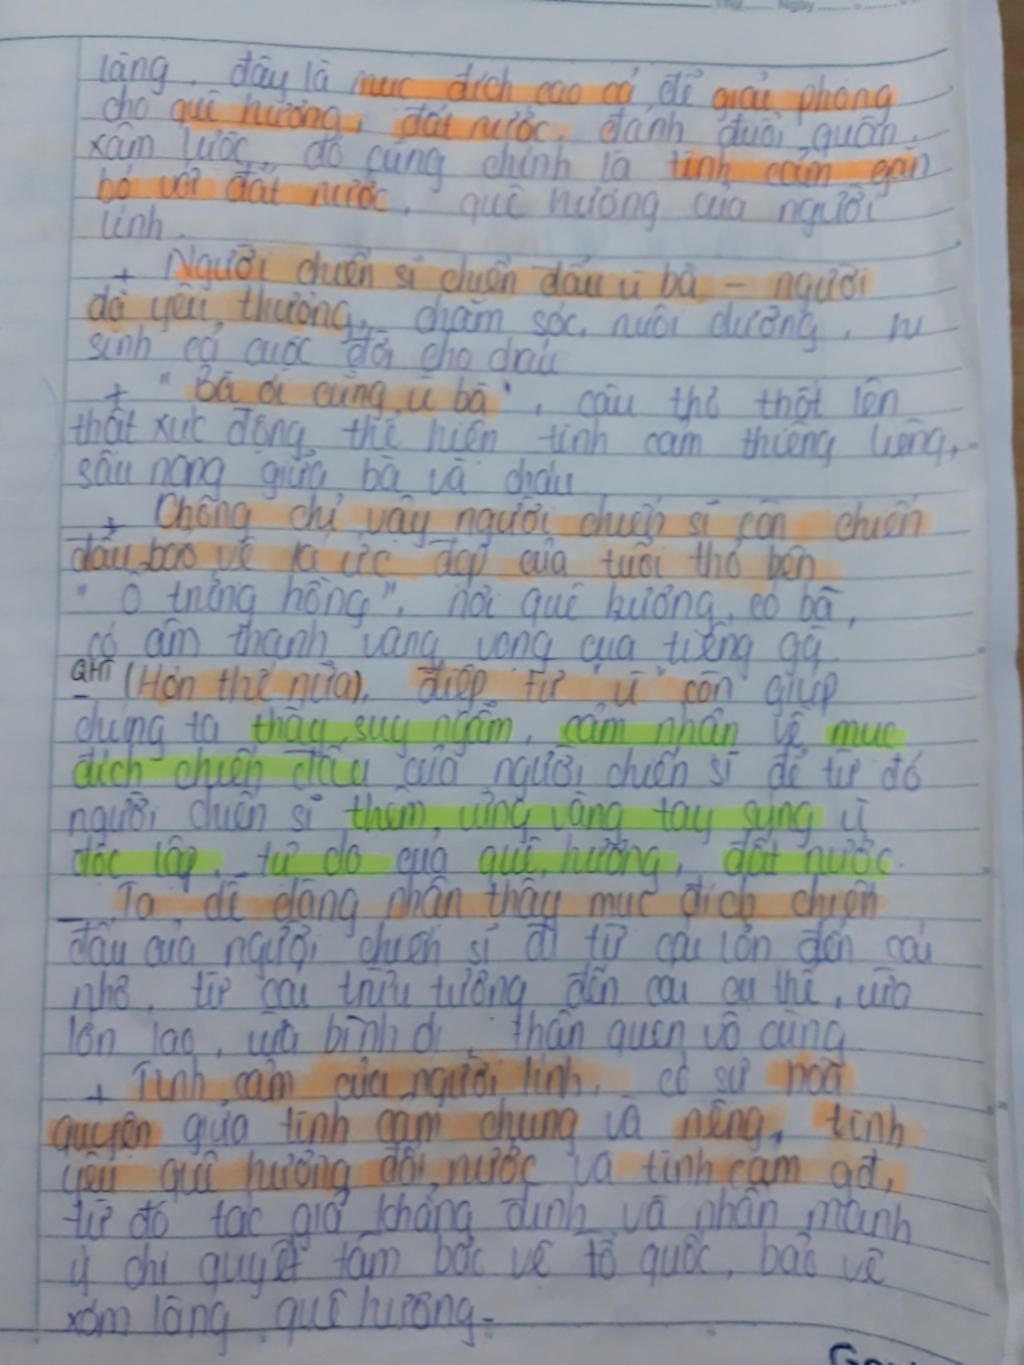 Thứ Ngày
làng, đây là mục đích cao cả để giải phóng
cho quê hương, đất nước, đánh đuổi quân
xâm lược, đó cũng chính là tình cảm gắn
bó với đất nước, quê hương của người
lính.
+ Người chiến sĩ chiến đấu vì bà - người
đã yêu thương, chăm sóc, nuôi dưỡng, hi
sinh cả cuộc đời cho cháu
+ "Bà ơi cũng vì bà", câu thơ thốt lên
thật xúc động thể hiện tình cảm thiêng liêng,
sâu nặng giữa bà và cháu
+ Chẳng chỉ vậy người chiến sĩ còn chiến
đấu bảo vệ kí ức đẹp của tuổi thơ bên
"ổ trứng hồng", nơi quê hương, có bà,
có âm thanh vang vọng của tiếng gà.
- (Hơn thế nữa), điệp từ "vì" còn giúp
chúng ta thấy, suy ngẫm, cảm nhận về mục
đích chiến đấu của người chiến sĩ để từ đó
người chiến sĩ thêm vững vàng tay súng vì
độc lập, tự do của quê hương, đất nước.
- Ta dễ dàng nhận thấy mục đích chiến
đấu của người chiến sĩ đi từ cái lớn đến cái
nhỏ, từ cái trừu tượng đến cái cụ thể, vừa
lớn lao, vừa bình dị, thân quen vô cùng
+ Tình cảm của người lính, có sự hoà
quyện giữa tình cảm chung và riêng, tình
yêu quê hương đất nước và tình cảm gđ,
từ đó tác giả khẳng định và nhấn mạnh
ý chí quyết tâm bảo vệ tổ quốc, bảo vệ
xóm làng quê hương.